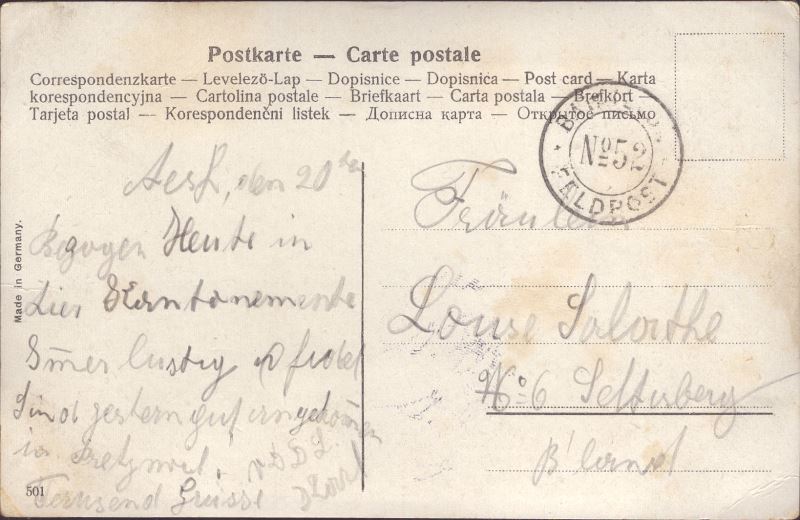 Postkarte — Carte postale
Correspondenzkarte — Levelező-Lap — Dopisnice — Dopisnica — Post card — Karta
korespondencyjna — Cartolina postale — Briefkaart — Carta postala — Brefkort —
Tarjeta postal — Korespondenční listek — Дописна карта — Открытое письмо
No 52
FELDPOST
Aesch, den 20ten
Bezogen Heute in
hier Kantonemente
lustig fidel
Sind gestern gut angekommen
in
Tausend Grüsse
Fräulein
Louise
No 6 Seltisberg
B'land
Made in Germany.
501